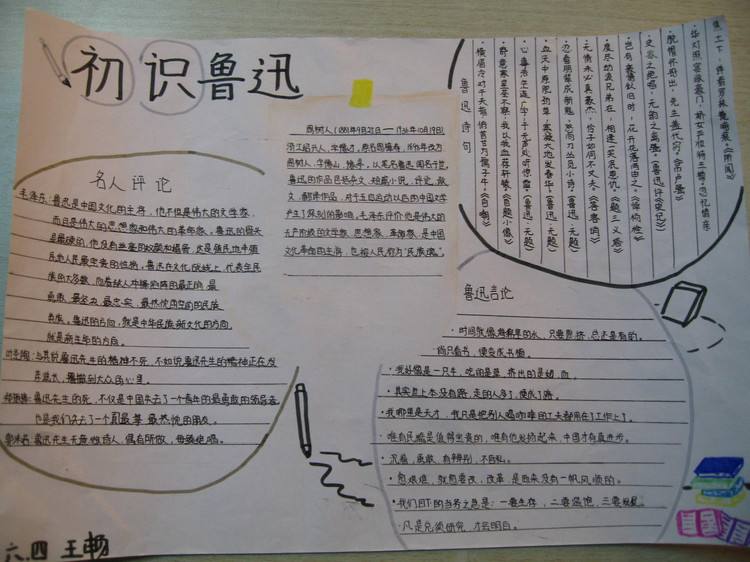 初识鲁迅
周树人(1881年9月25日—1936年10月19日)
浙江绍兴人,字豫才,原名周樟寿,1898年改为
周树人,字豫山、豫亭,以笔名鲁迅闻名于世。
鲁迅的作品包括杂文、短篇小说、评论、散
文、翻译作品,对于五四运动以后的中国文学
产生了深刻的影响。毛泽东评价他是伟大的
无产阶级的文学家、思想家、革命家、是中国
文化革命的主将,也被人民称为“民族魂”。
名人评论
毛泽东:鲁迅是中国文化的主将,他不但是伟大的文学家,
而且是伟大的思想家和伟大的革命家。鲁迅的骨头
是最硬的,他没有丝毫的奴颜和媚骨,这是殖民地半殖
民地人民最宝贵的性格。鲁迅在文化战线上,代表全民
族的大多数,向着敌人冲锋陷阵的最正确、最
勇敢、最坚决、最忠实、最热忱的空前的民族
英雄。鲁迅的方向,就是中华民族新文化的方向,
就是新生命的方向。
叶圣陶:与其说鲁迅先生的精神不死,不如说鲁迅先生的精神正在发
芽滋长,播散到大众的心里。
郑振铎:鲁迅先生的死,不仅是中国失去了一个青年的最勇敢的领导者,
也是我们失去了一个最真挚最热忱的朋友。
郭沫若:鲁迅先生无意做诗人,偶有所做,每臻绝唱。
鲁迅诗句
横眉冷对千夫指,俯首甘为孺子牛。《自嘲》
寄意寒星荃不察,我以我血荐轩辕。《自题小像》
心事浩茫连广宇,于无声处听惊雷。《鲁迅·无题》
血沃中原肥劲草,寒凝大地发春华。《鲁迅·无题》
忍看朋辈成新鬼,怒向刀丛觅小诗。《鲁迅·无题》
无情未必真豪杰,怜子如何不丈夫。《答客诮》
度尽劫波兄弟在,相逢一笑泯恩仇。《题三义塔》
岂有豪情似旧时,花开花落两由之。《悼杨铨》
史家之绝唱,无韵之离骚。《鲁迅评《史记》》
鲁迅言论
·时间就像海绵里的水,只要愿挤,总还是有的。
·倘只看书,便变成书橱。
·我好像是一只牛,吃的是草,挤出的是奶、血。
·其实地上本没有路,走的人多了,便成了路。
·我哪里是天才,我只是把别人喝咖啡的工夫都用在了工作上了。
·唯有民魂是值得宝贵的,唯有他发扬起来,中国才有真进步。
·沉着、勇敢、有辨别、不自私。
·愈艰难,就愈要做,改革,是向来没有一帆风顺的。
·我们目下的当务之急是:一要生存,二要温饱,三要发展。
·凡是总须研究,才会明白。
六.四 王畅